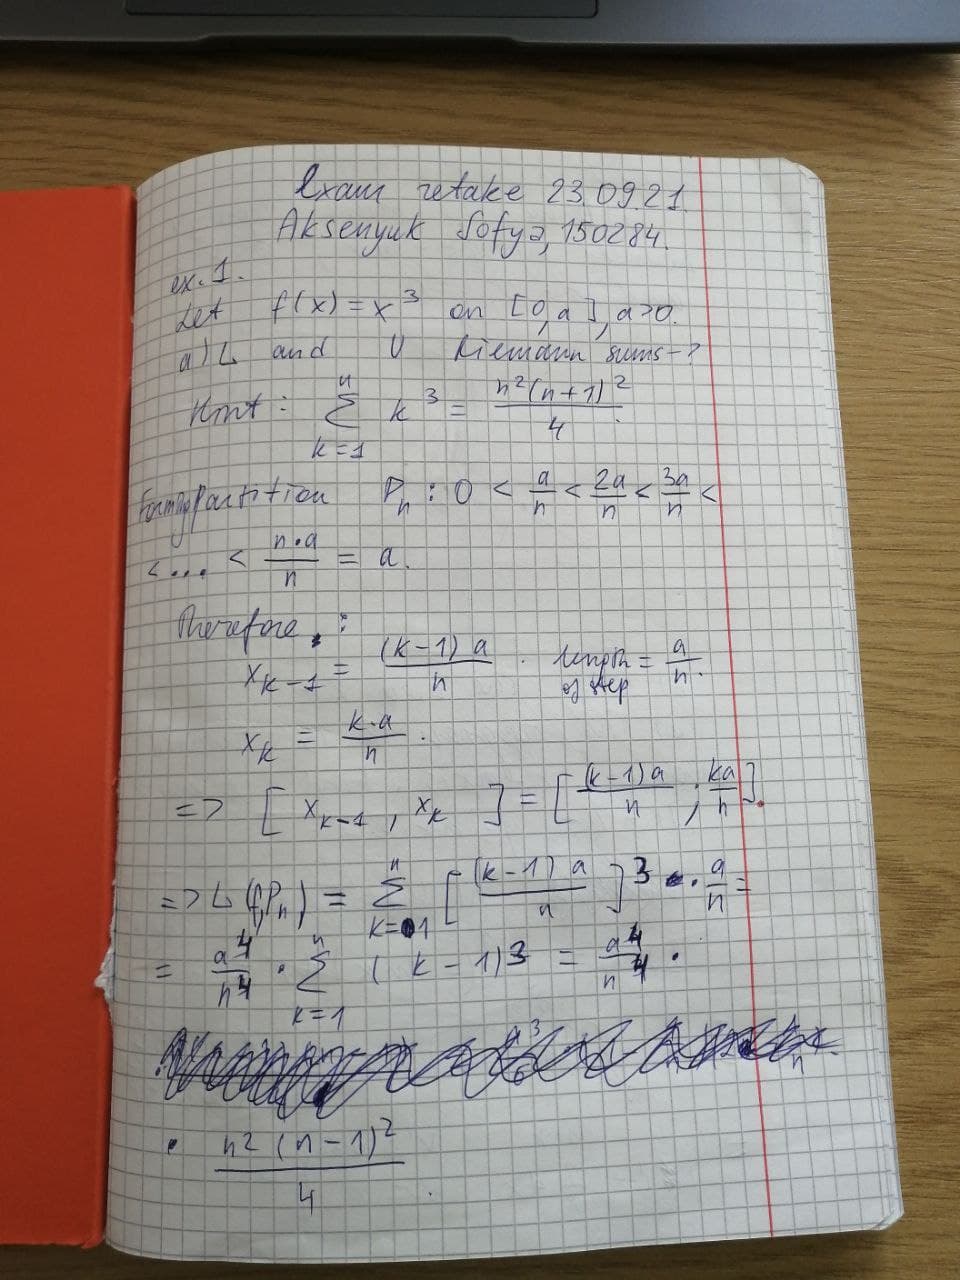 Exam retake 23.09.21.
Aksenyuk Sofya, 150284.
ex. 1.
Let f(x) = x³ on [0, a], a>0.
a) L and U Riemann sums - ?
Hint: ∑_{k=1}^{n} k³ = n²(n+1)²/4.
Forming Partition Pₙ : 0 < a/n < 2a/n < 3a/n <
< ... < n·a/n = a.
Therefore :
x_{k-1} = (k-1)a/n . length of step = a/n.
x_k = k·a/n .
=> [ x_{k-1} , x_k ] = [ (k-1)a/n ; ka/n ].
=> L(f,Pₙ) = ∑_{k=1}^{n} [ (k-1)a/n ]³ · a/n =
= a⁴/n⁴ · ∑_{k=1}^{n} (k-1)³ = a⁴/n⁴ ·
· n²(n-1)²/4 .